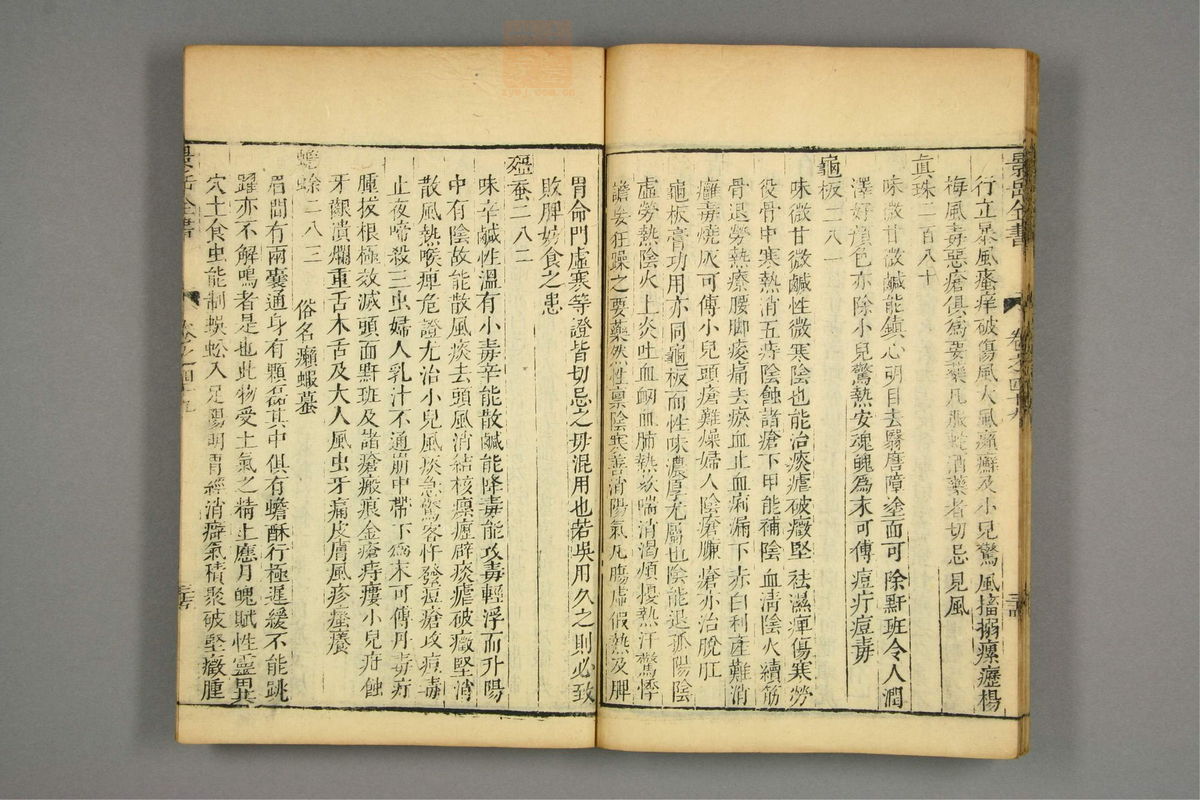 景岳全書 卷之四十九
行立暴風瘙痒破傷風大風癩癬及小兒驚風搐搦瘰癧楊
梅風毒惡瘡俱爲要藥凡服蛇酒藥者切忌見風
眞珠二百八十
味微甘微鹹能鎮心明目去翳磨障塗面可除䵟斑令人潤
澤好顏色亦除小兒驚熱安魂魄爲末可傅痘疔痘毒
龜板二八一
味微甘微鹹性微寒陰也能治痰瘧破癥堅祛濕痺傷寒勞
役骨中寒熱消五痔陰蝕諸瘡下甲能補陰血清陰火續筋
骨退勞熱療腰脚痠痛去瘀血止血痢漏下赤白利產難消
癰毒燒灰可傅小兒頭瘡難燥婦人陰瘡臁瘡亦治脫肛
龜板膏功用亦同龜板而性味濃厚尤屬也陰能退孤陽陰
虛勞熱陰火上炎吐血衂血肺熱欬喘消渴煩擾熱汗驚悸
譫妄狂躁之要藥然性禀陰寒善消陽氣凡陽虛假熱及脾
胃命門虛寒等證皆切忌之毋混用也若誤用久之則必致
敗脾妨食之患
殭蚕二八二
味辛鹹性溫有小毒辛能散鹹能降毒能攻毒輕浮而升陽
中有陰故能散風痰去頭風消結核瘰癧辟痰瘧破癥堅消
散風熱喉痺危證尤治小兒風痰急驚客忤發痘瘡攻痘毒
止夜啼殺三虫婦人乳汁不通崩中帶下爲末可傅丹毒疔
腫拔根極效滅頭面䵟斑及諸瘡瘢痕金瘡痔瘻小兒疳蝕
牙齦潰爛重舌木舌及大人風虫牙痛皮膚風疹瘙癢
蟾蜍二八三 俗名癩蝦蟇
眉間有兩囊通身有顆磊其中俱有蟾酥行極遲緩不能跳
躍亦不解鳴者是也此物受土氣之精上應月魄賦性靈異
穴土食虫能制蜈蚣入足陽明胃經消癖氣積聚破堅癥腫
景岳全書 卷之四十九